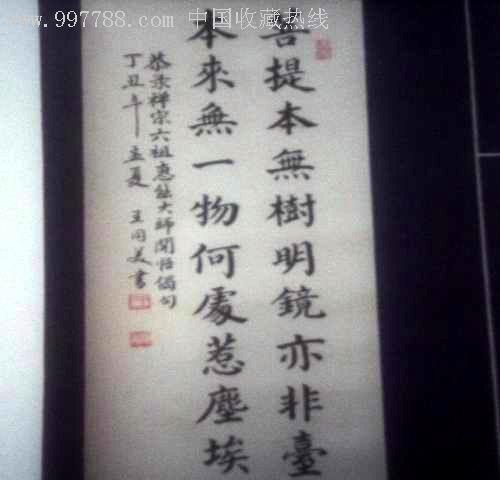 www.997788.com 中国收藏热线
菩提本無樹明鏡亦非臺
本來無一物何處惹塵埃
恭录禅宗六祖惠能大師開悟偈句
丁丑年孟夏 王同美書